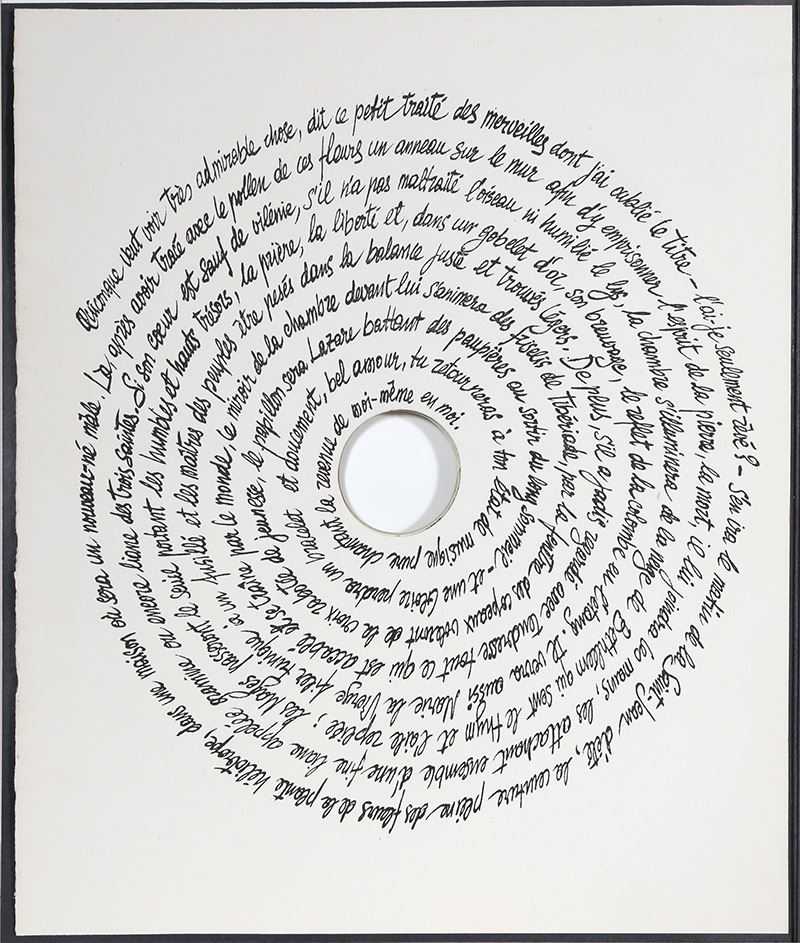 Quiconque veut voir très admirable chose, dit ce petit traité des merveilles dont j'ai oublié le titre – l'ai-je seulement rêvé ? – S'en ira le matin de la Saint-Jean d'été, la ceinture pleine des fleurs de la plante héliotrope, dans une maison où sera un nouveau-né mâle. Là,
après avoir tracé avec le pollen de ces fleurs un anneau sur le mur afin d'y emprisonner l'esprit de la pierre, la mort, il lui joindra les mains, les attachant ensemble d'une fine liane appelée ou encore liane des trois Saintes.
Si son coeur est sauf de vilénie, s'il n'a pas maltraité l'oiseau ni humilié le lys, la chambre s'illuminera de la neige de Bethléem qui sent le thym et l'aile repliée ; les Mages passeront le seuil portant les humbles
et hauts trésors, la prière, la liberté et, dans un gobelet d'or, son breuvage, le reflet de la colombe en l'étang. Il verra aussi Marie la Vierge filer tunique à un fusillé et les maîtres des
peuples être pesés dans la balance juste et trouvés légers. De plus, s'il a jadis regardé avec tendresse tout ce qui est accablé et se traîne par le monde,
le miroir de la chambre devant lui s'animera des de Tibériade, par la fenêtre des copeaux voleront de la croix rabotée de jeunesse,
le papillon sera Lazare battant des paupières au sortir du long sommeil – et une Gloire perdra un bracelet
et doucement, bel amour, tu retourneras à ton état de musique pure chantant la revenue
de moi-même en moi.